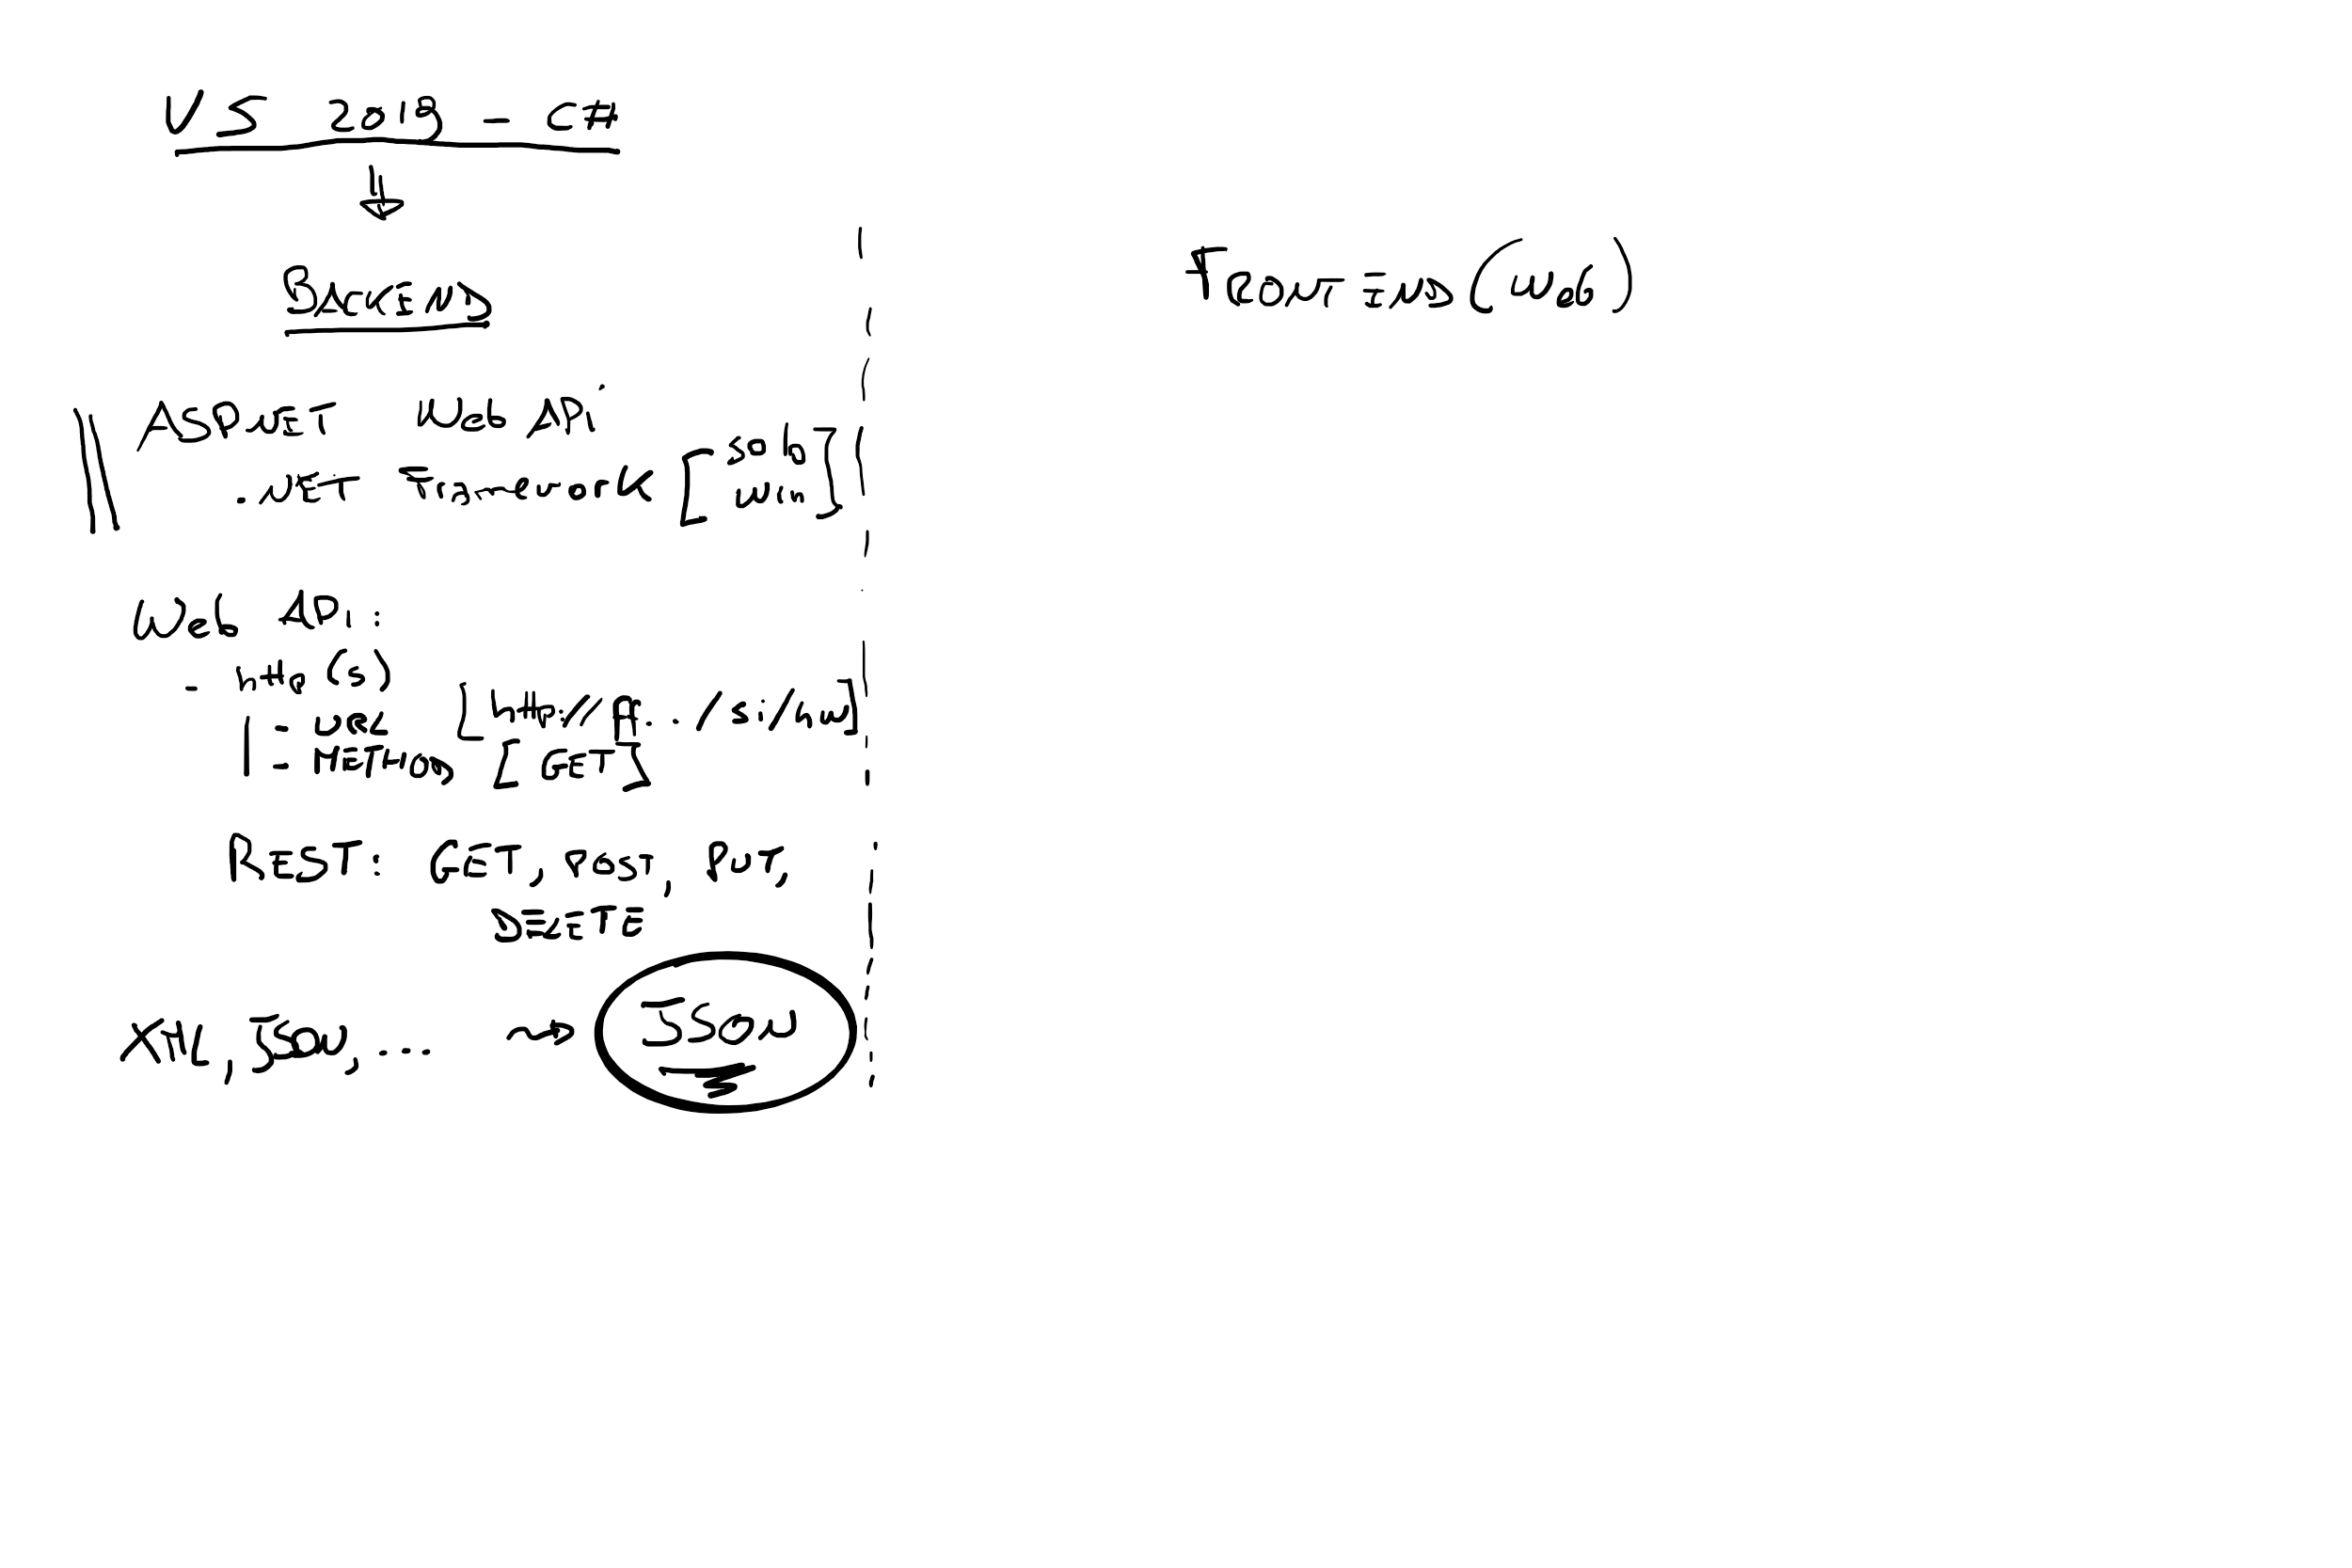 VS 2019 - C#
BACKEND
ASP.NET Web API
.NET Framework [solo Win]
Web API:
- http (s)
- URL [http://A. . /sin/nu]
- METHOD [GET]
REST: GET, POST, PUT,
DELETE
XML, JSON, ...
JSON
FRONT-END (Web)